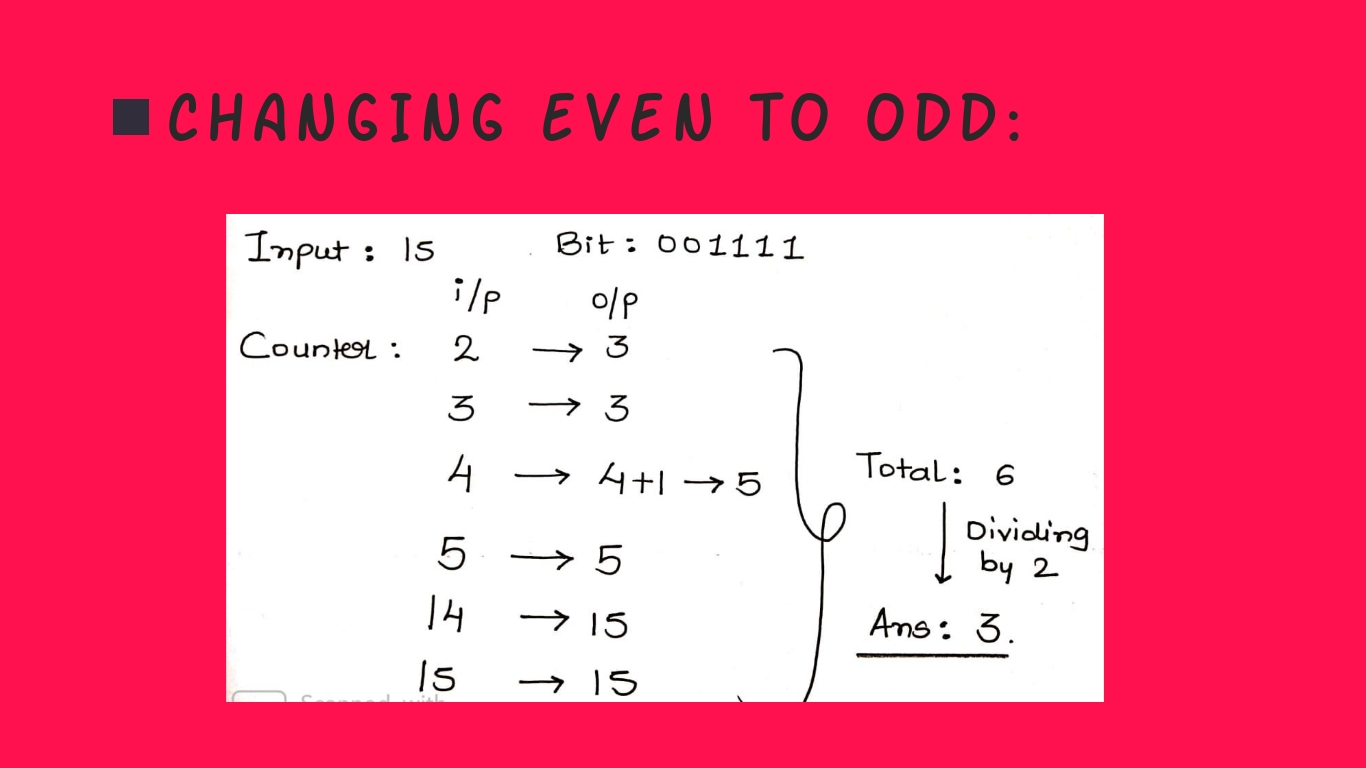 CHANGING EVEN TO ODD:
Input: 15 Bit: 001111
i/p o/p
Counter: 2 → 3
3 → 3
4 → 4+1 → 5
5 → 5
14 → 15
15 → 15
Total: 6
Dividing
by 2
Ans: 3.